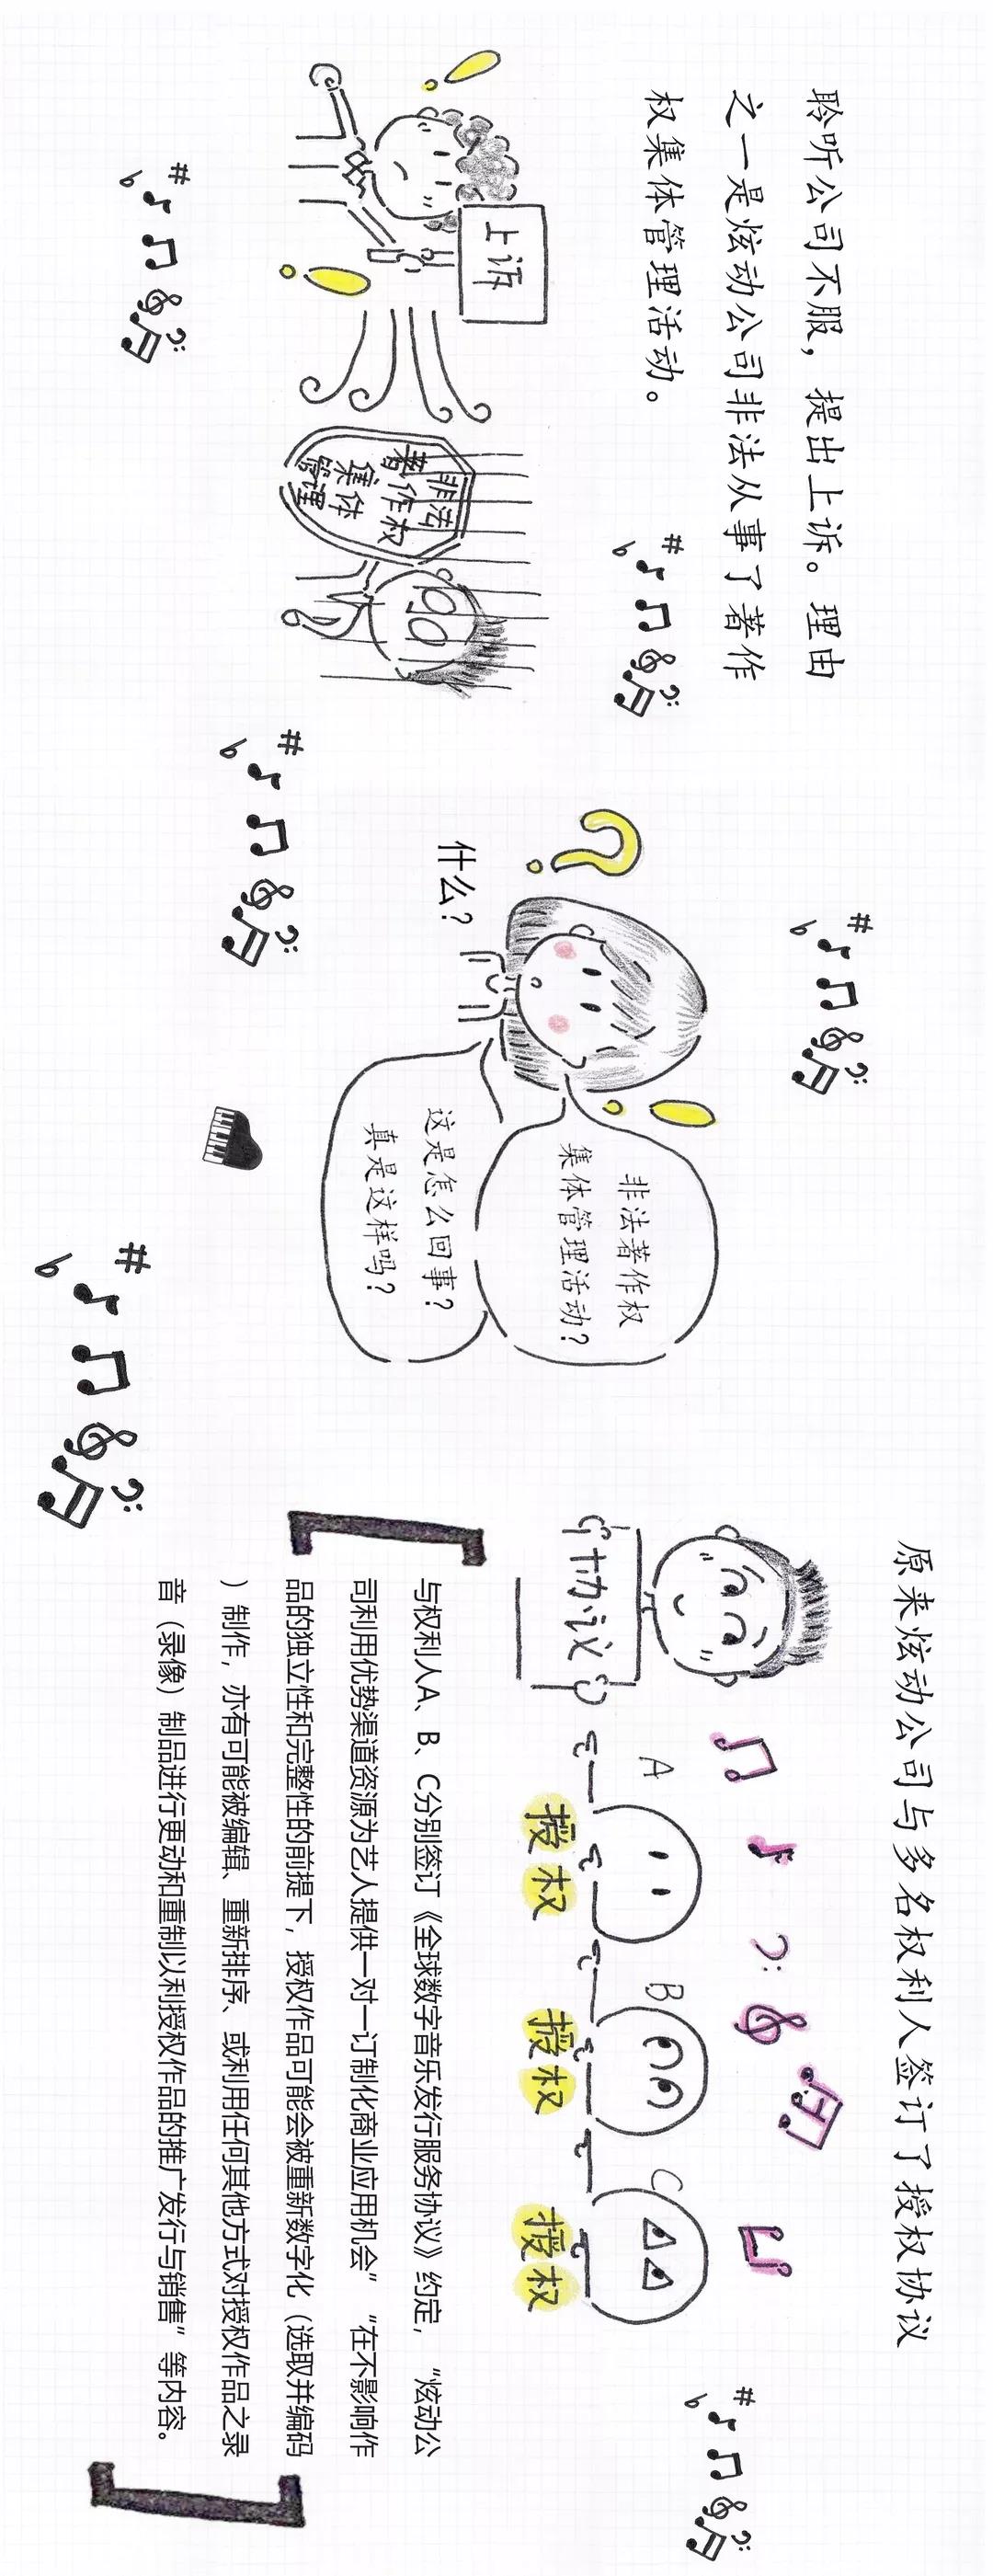 聆听公司不服，提出上诉。理由
之一是炫动公司非法从事了著作
权集体管理活动。
上诉
非法
著作权
集体
管理
什么？
非法著作权
集体管理活动？
这是怎么回事？
真是这样吗？
原来炫动公司与多名权利人签订了授权协议
协议
A
授权
B
授权
C
授权
与权利人A、B、C分别签订《全球数字音乐发行服务协议》约定，“炫动公
司利用优势渠道资源为艺人提供一对一订制化商业应用机会”“在不影响作
品的独立性和完整性的前提下，授权作品可能会被重新数字化（选取并编码
）制作，亦有可能被编辑、重新排序、或利用任何其他方式对授权作品之录
音（录像）制品进行更动和重制以利授权作品的推广发行与销售”等内容。